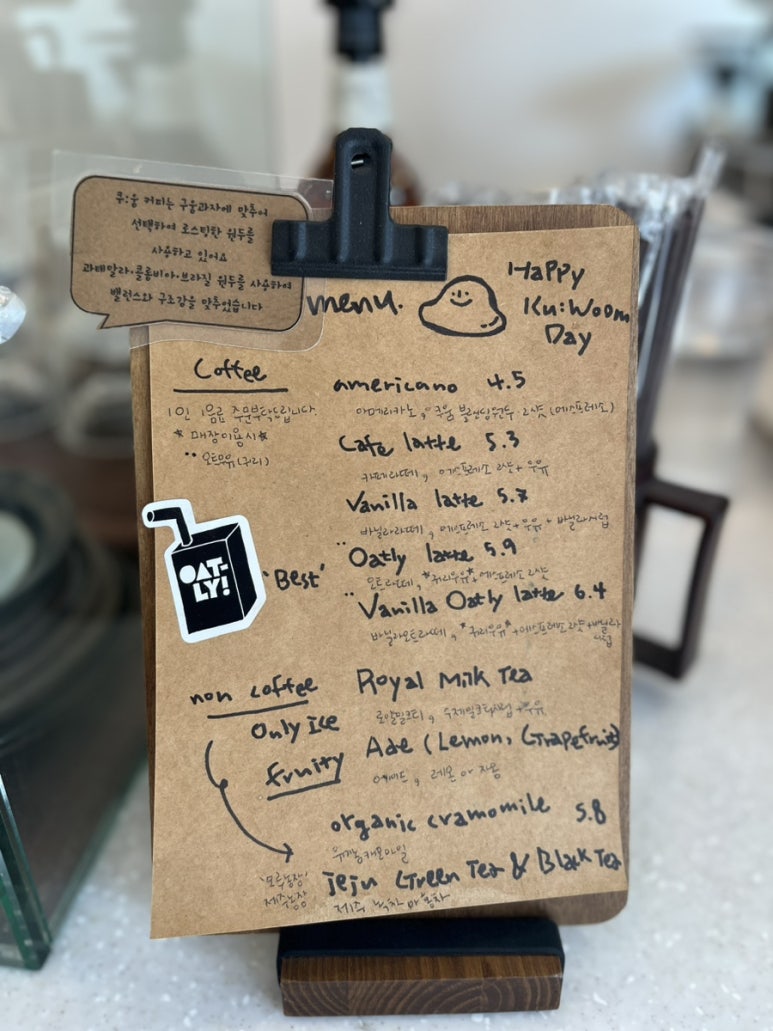 쿠;움 커피는 구움과자에 맞추어
선택하여 로스팅한 원두를
사용하고 있어요
과테말라·콜롬비아·브라질 원두를 사용하여
밸런스와 구조감을 맞추었습니다
menu.
HaPPy
Ku:Woom
Day
Coffee
1인 1음료 주문부탁드립니다.
*매장이용시*
오트우유(귀리)
americano 4.5
아메리카노, 쿠움 블렌딩원두 2샷(에스프레소)
Cafe latte 5.3
카페라떼, 에스프레소 2샷+우유
Vanilla latte 5.7
바닐라라떼, 에스프레소 2샷+우유+바닐라시럽
OAT-
LY!
'Best'
Oatly latte 5.9
오트라떼, *귀리우유* 에스프레소 2샷
Vanilla Oatly latte 6.4
바닐라오트라떼, *귀리우유*+에스프레소 2샷+바닐라
시럽
non coffee
Only Ice
fruity
Royal Milk Tea
로얄밀크티, 수제밀크티시럽+우유
Ade (Lemon, Grapefruit)
에이드, 레몬 or 자몽
organic cramomile 5.8
유기농캐모마일
제주농장
jeju Green Tea & Black Tea
제주 녹차 and 홍차